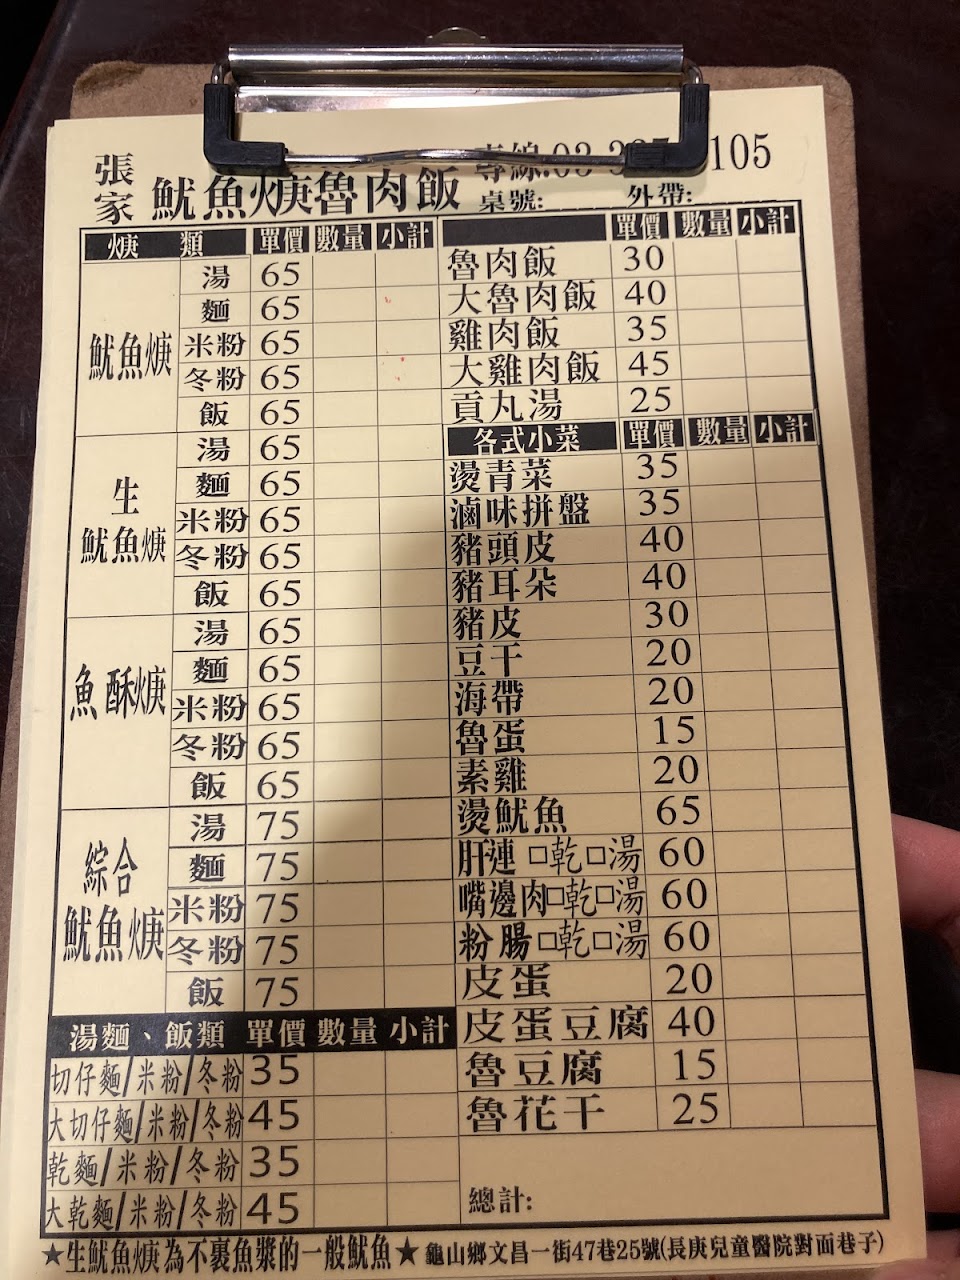 張家 魷魚焿魯肉飯
專線:03 105
桌號: 外帶:
焿 類 單價 數量 小計
魷魚焿
湯 65
麵 65
米粉 65
冬粉 65
飯 65
生魷魚焿
湯 65
麵 65
米粉 65
冬粉 65
飯 65
魚酥焿
湯 65
麵 65
米粉 65
冬粉 65
飯 65
綜合魷魚焿
湯 75
麵 75
米粉 75
冬粉 75
飯 75
湯麵、飯類 單價 數量 小計
切仔麵/米粉/冬粉 35
大切仔麵/米粉/冬粉 45
乾麵/米粉/冬粉 35
大乾麵/米粉/冬粉 45
單價 數量 小計
魯肉飯 30
大魯肉飯 40
雞肉飯 35
大雞肉飯 45
貢丸湯 25
各式小菜 單價 數量 小計
燙青菜 35
滷味拼盤 35
豬頭皮 40
豬耳朵 40
豬皮 30
豆干 20
海帶 20
魯蛋 15
素雞 20
燙魷魚 65
肝連 □乾□湯 60
嘴邊肉□乾□湯 60
粉腸□乾□湯 60
皮蛋 20
皮蛋豆腐 40
魯豆腐 15
魯花干 25
總計:
★生魷魚焿為不裹魚漿的一般魷魚★ 龜山鄉文昌一街47巷25號(長庚兒童醫院對面巷子)